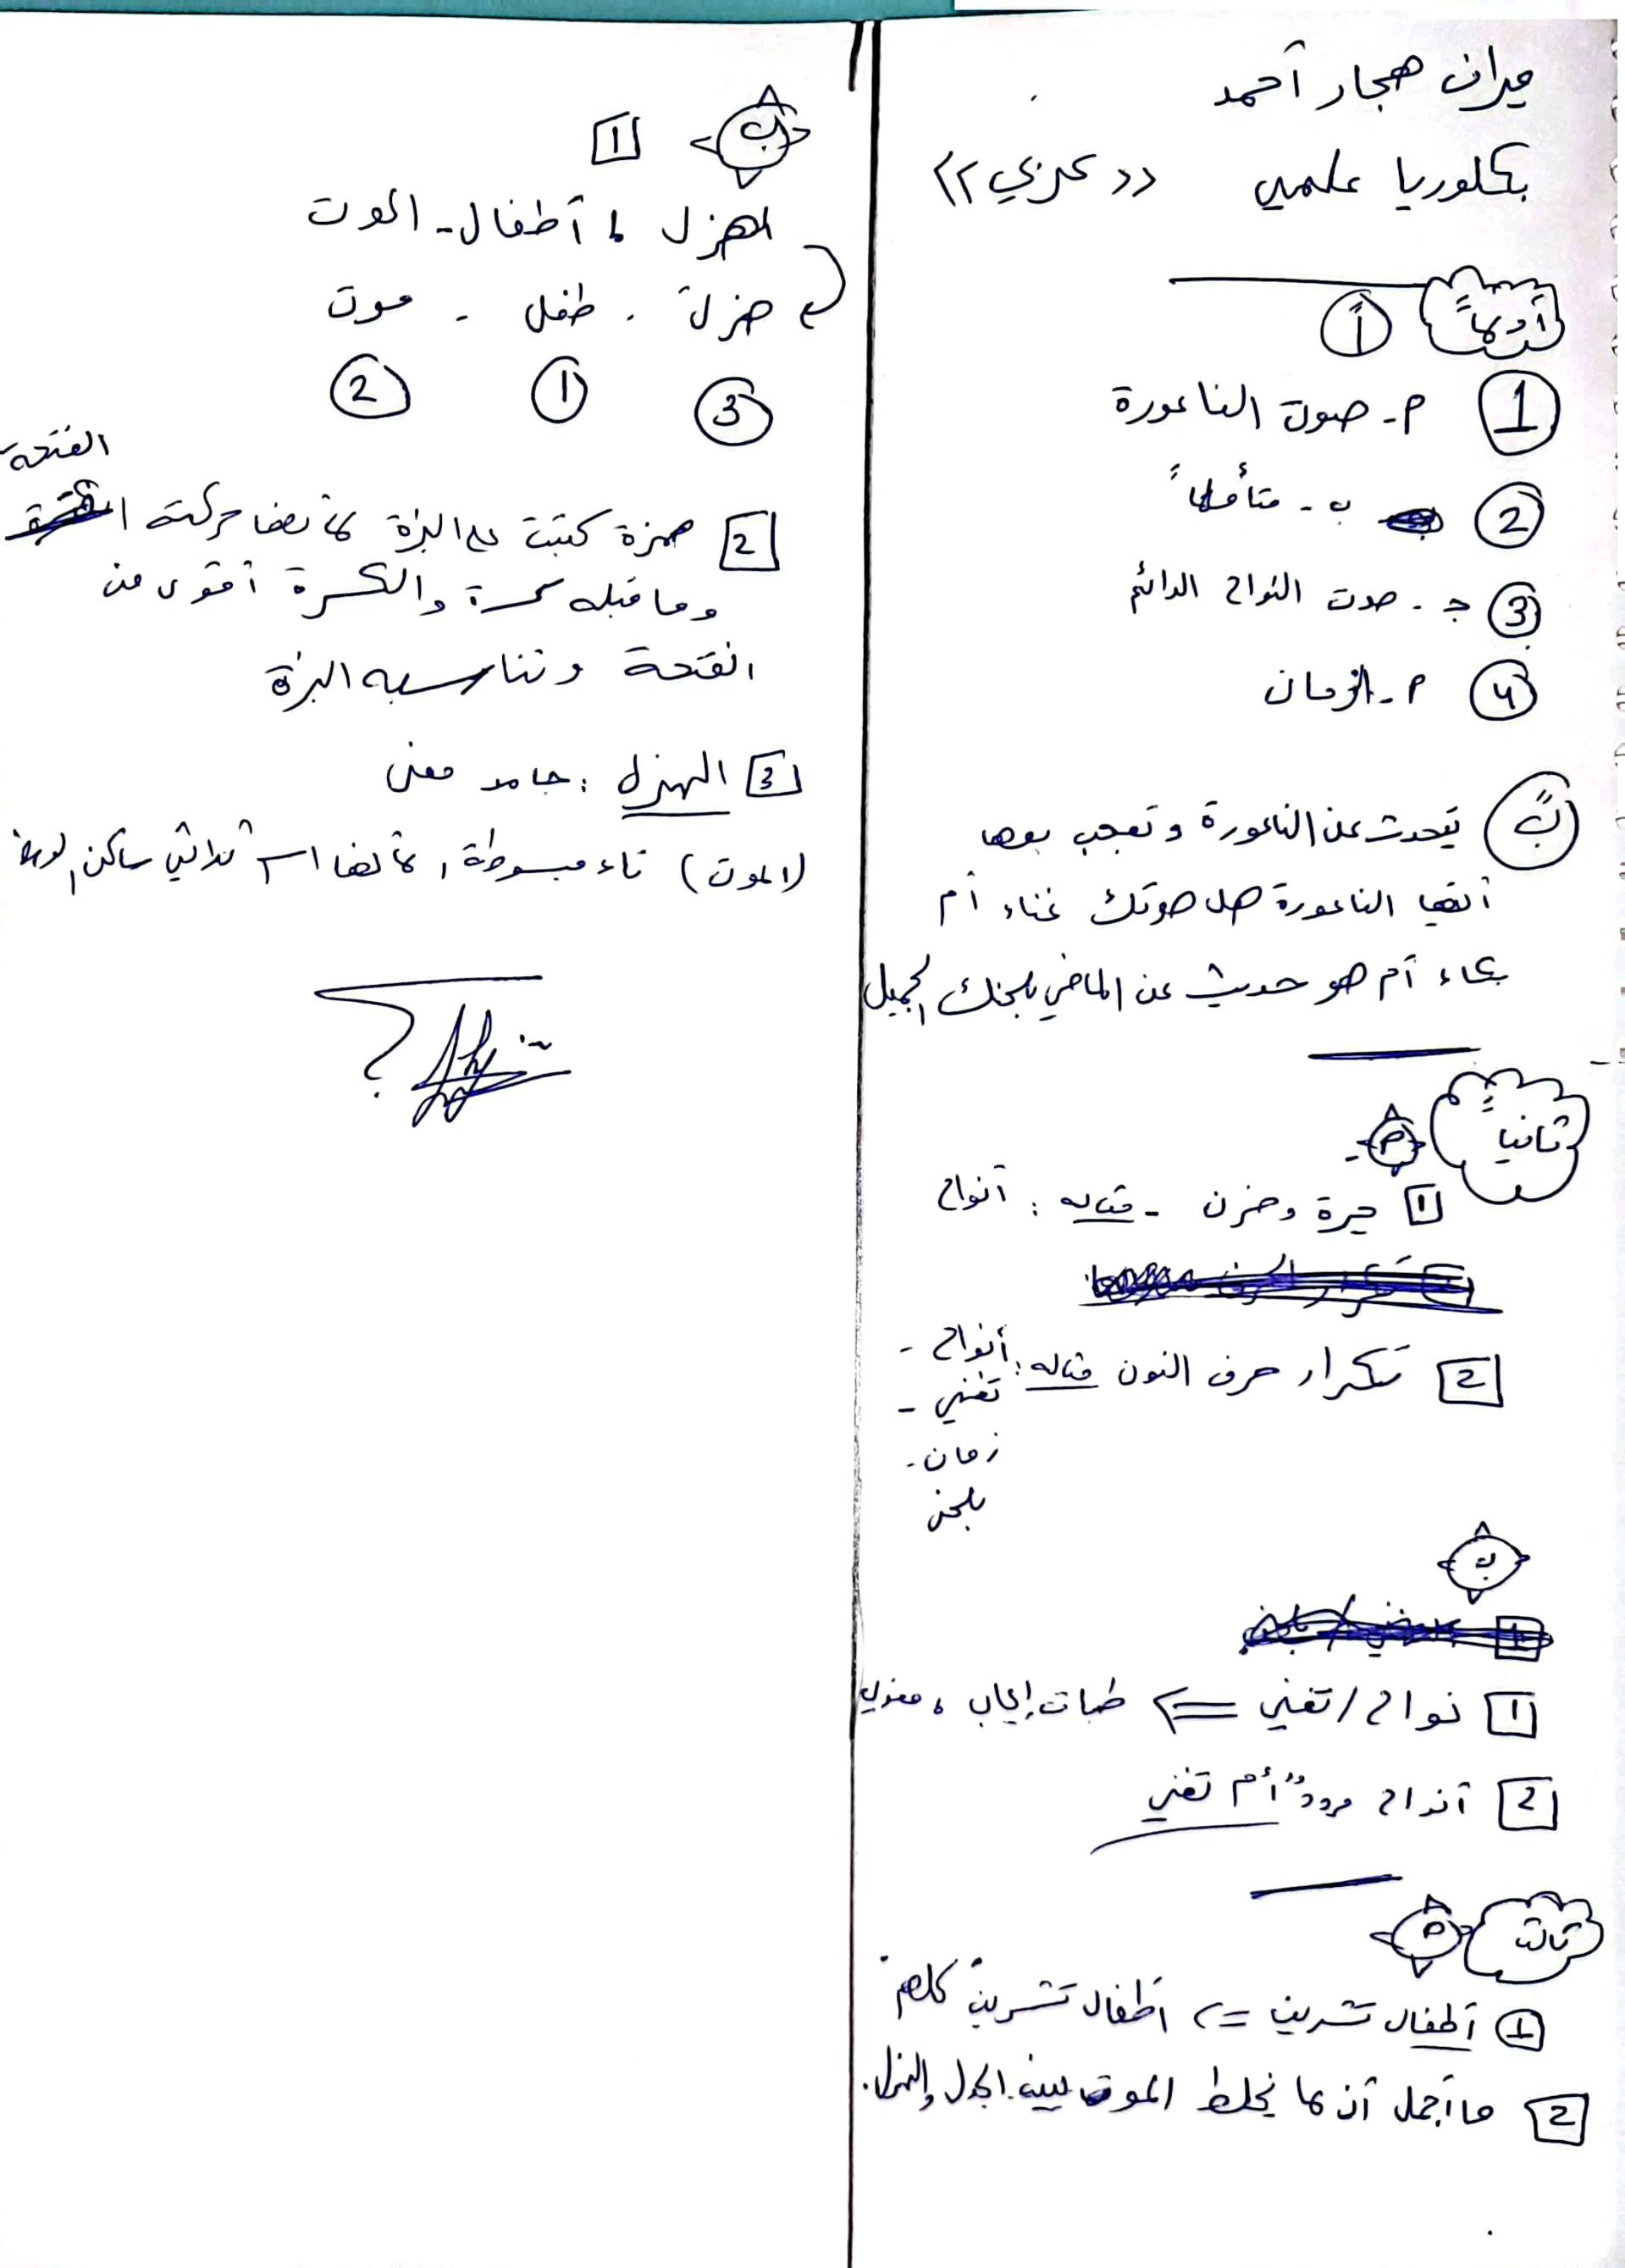 ميران هجار أحمد
بكلوريا علمي << عربي >>
أولاً أ
1 م - صوت الناعورة
2 ب - متأملاً
3 ج - صوت النواح الدائم
4 م - الزمان
ب يتحدث عن الناعورة وتعجب بوصا
أيتها الناعورة هل صوتك غناء أم
بكاء أم هو حديث عن الماضي بلحنك الجميل
ثانياً م -
1 حيرة وحزن - مثاله : أنواح
2 تكرار حرف النون مثاله : أنواح -
تغني -
زمان -
بلحن
ب
1 نواح / تغني <= طباق إيجاب ،
2 أنواح مردد أم تغني
ثالثا م
1 أطفال تشرين <= أطفال تشرين كلهم
2 ما أجمل أن لا يخلط الموت بين الجدل والهزل .
ب 1
الهزل ، أطفال - الموت
هزل . طفل - موت
3 1 2
الفتحة
2 همزة كتبت على النبرة لأنها حركته
وما قبله كسرة والكسرة أقوى من
الفتحة وتناسبه النبرة
3 الهزل : جامد معنى
(الموت) تاء مبسوطة ، لأنها اسم ثلاثي ساكن الوسط